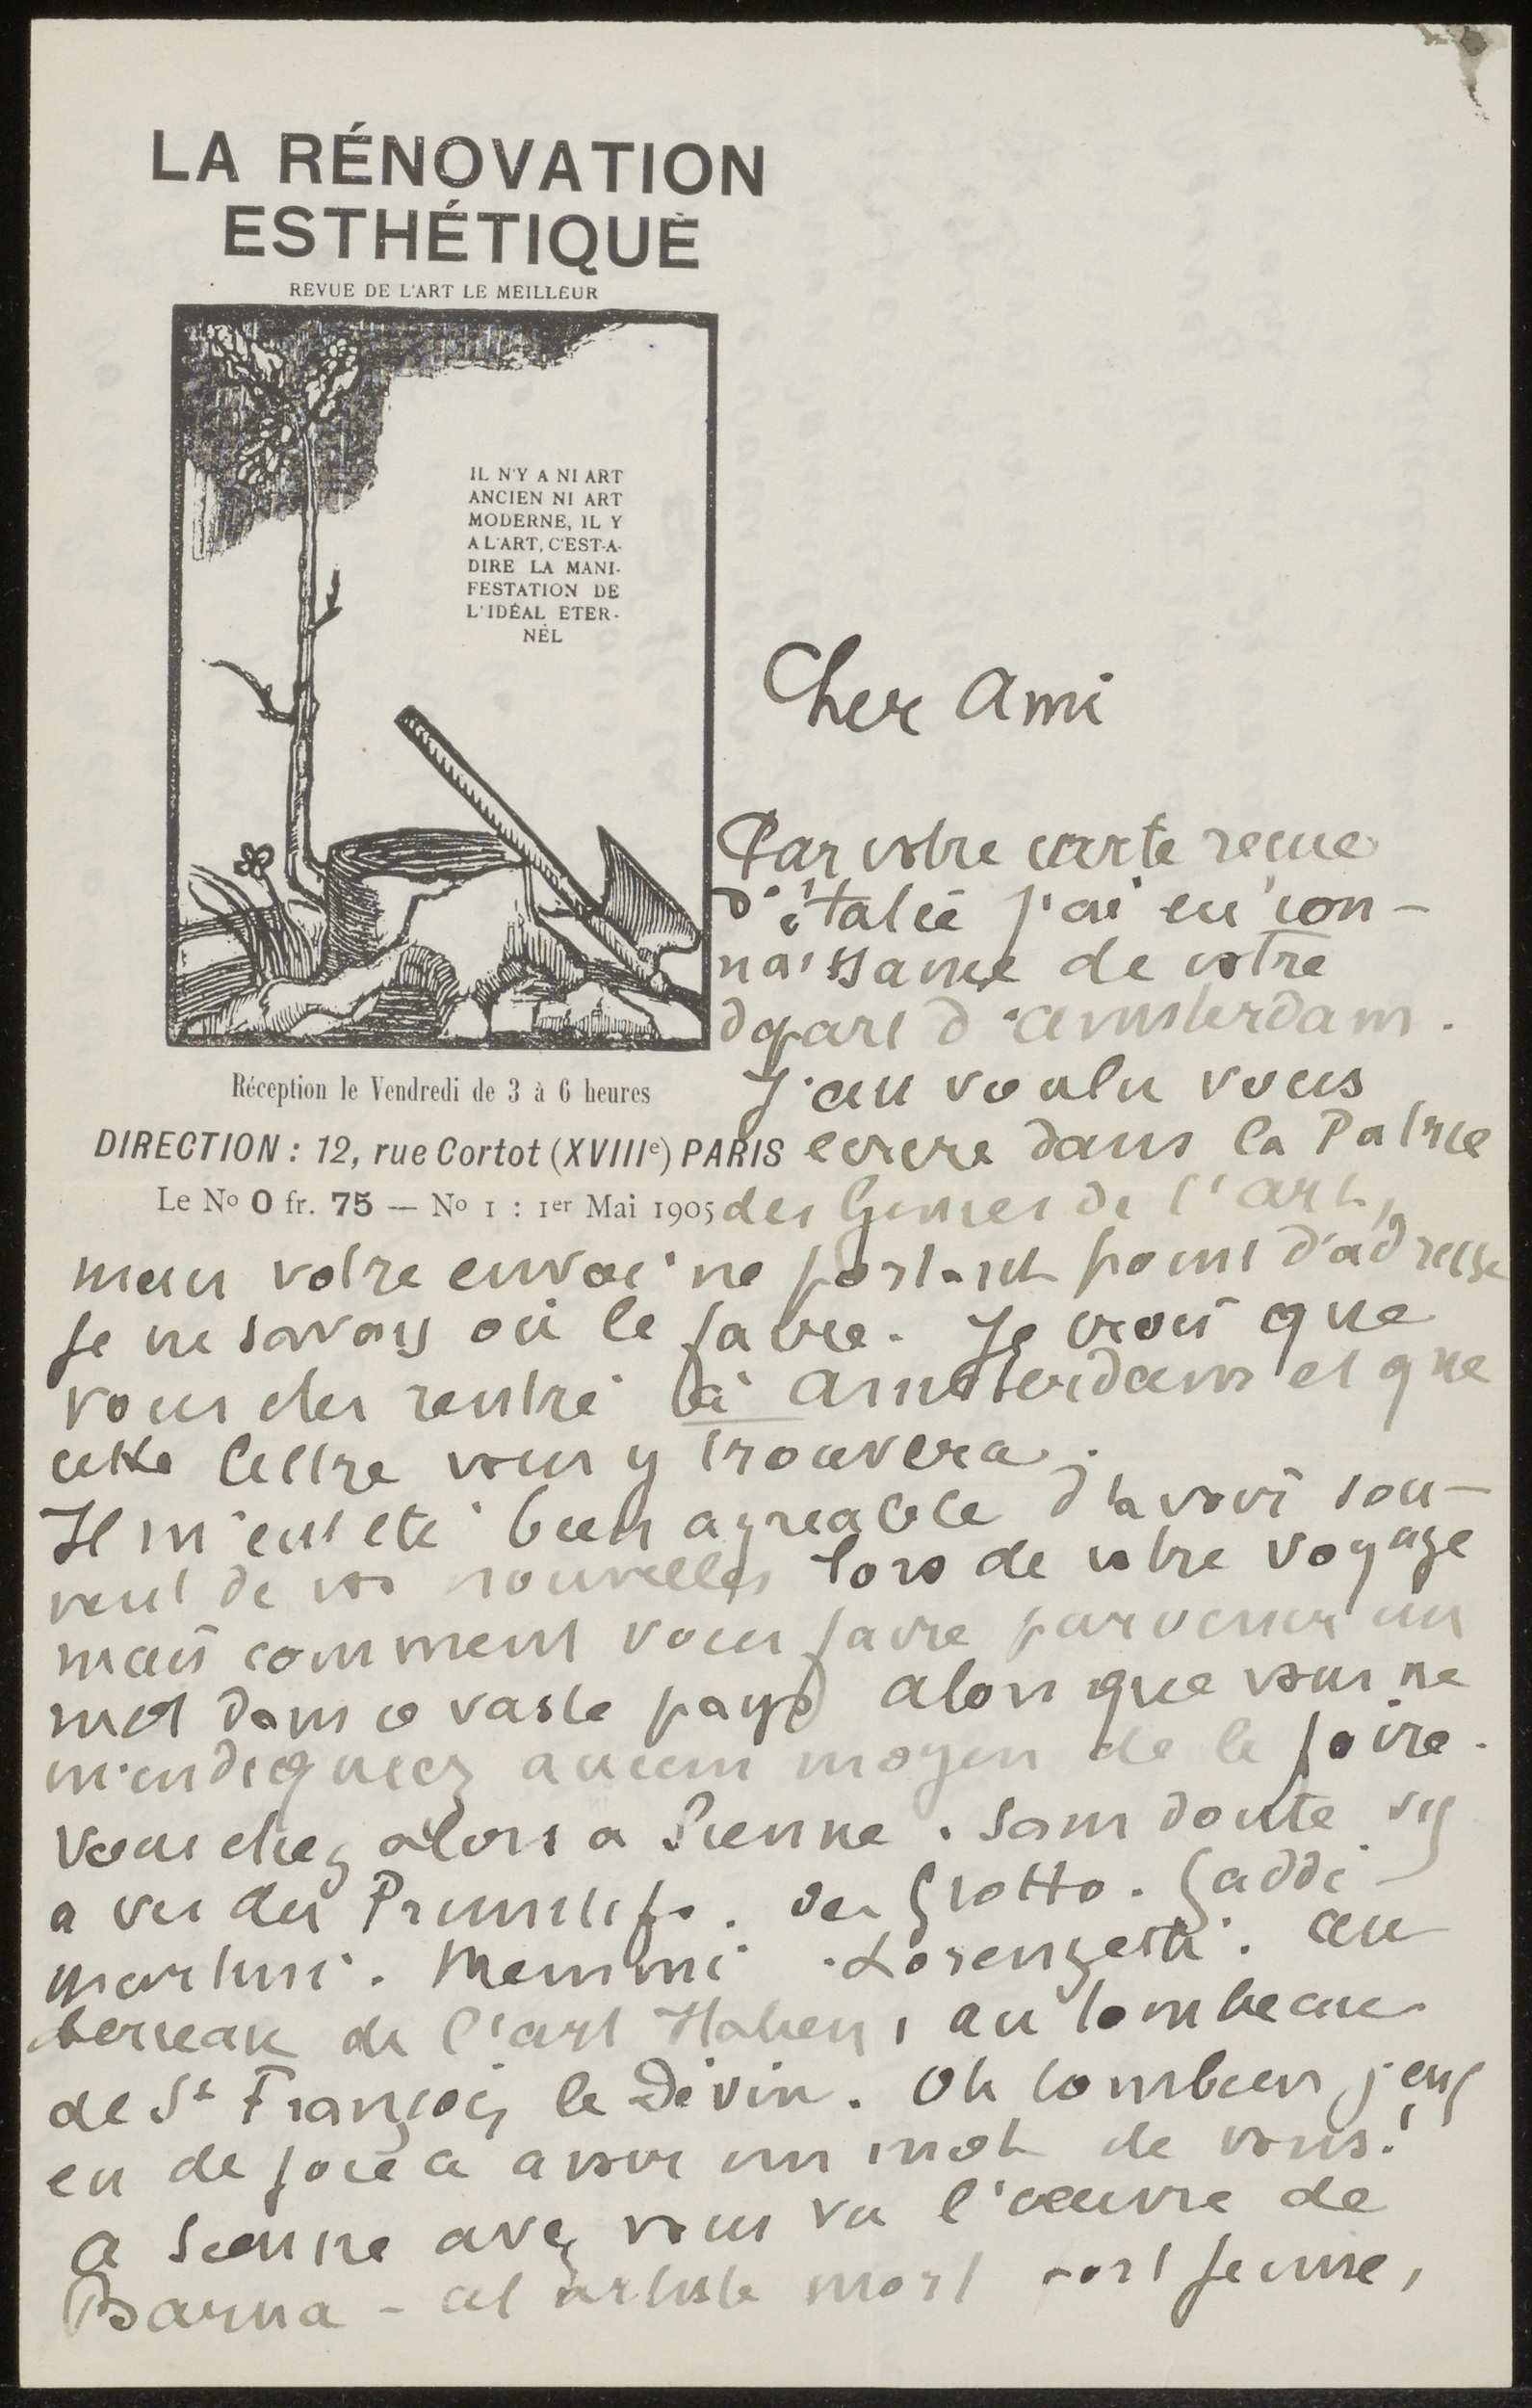 LA RÉNOVATION
ESTHÉTIQUE
REVUE DE L'ART LE MEILLEUR
IL N'Y A NI ART
ANCIEN NI ART
MODERNE, IL Y
A L'ART, C'EST-A-
DIRE LA MANI-
FESTATION DE
L'IDÉAL ETER-
NEL
Réception le Vendredi de 3 à 6 heures
DIRECTION : 12, rue Cortot (XVIIIe) PARIS
Le No 0 fr. 75 — No 1 : 1er Mai 1905
Cher Ami
Par votre carte reçue
d'italie j'ai eu con-
naissance de votre
depart d'amsterdam.
J'au voulu vous
ecrire dans la Patrie
des Genies de l'art,
mais votre envoi ne portant point d'adresse
je ne savais où le faire. Je crois que
vous etes rentré à Amsterdam et que
cette lettre vous y trouvera.
Il m'eut eté bien agreable d'avoir sou-
vent de vos nouvelles lors de votre voyage
mais comment vous faire parvenir un
mot dans ce vaste pays alors que vous ne
m'indiquiez aucun moyen de le faire.
Vous etiez alors a Sienne. Sans doute
a vu des Primitifs. des Giotto. Gaddi -
Martini. Memmi. Lorenzetti. au
berceau de l'art Italien, au tombeau
de St François, le Divin. Oh combien j'eus
eu de joie a avoir un mot de vous!
a Sienne avez vous vu l'œuvre de
Barna - cet artiste mort fort jeune,